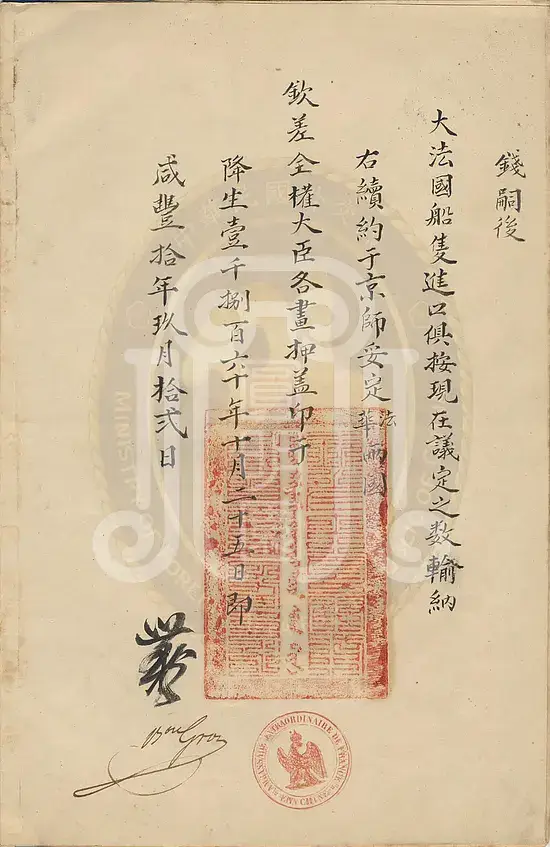 錢嗣後
大法國船隻進口俱按現在議定之數輸納
右續約于京師妥定法華兩國
欽差全權大臣各畫押盖印于
降生壹千捌百六十年十月二十五日即
咸豐拾年玖月拾弍日
Bon Gros
AMBASSADE EXTRAORDINAIRE DE FRANCE EN CHINE